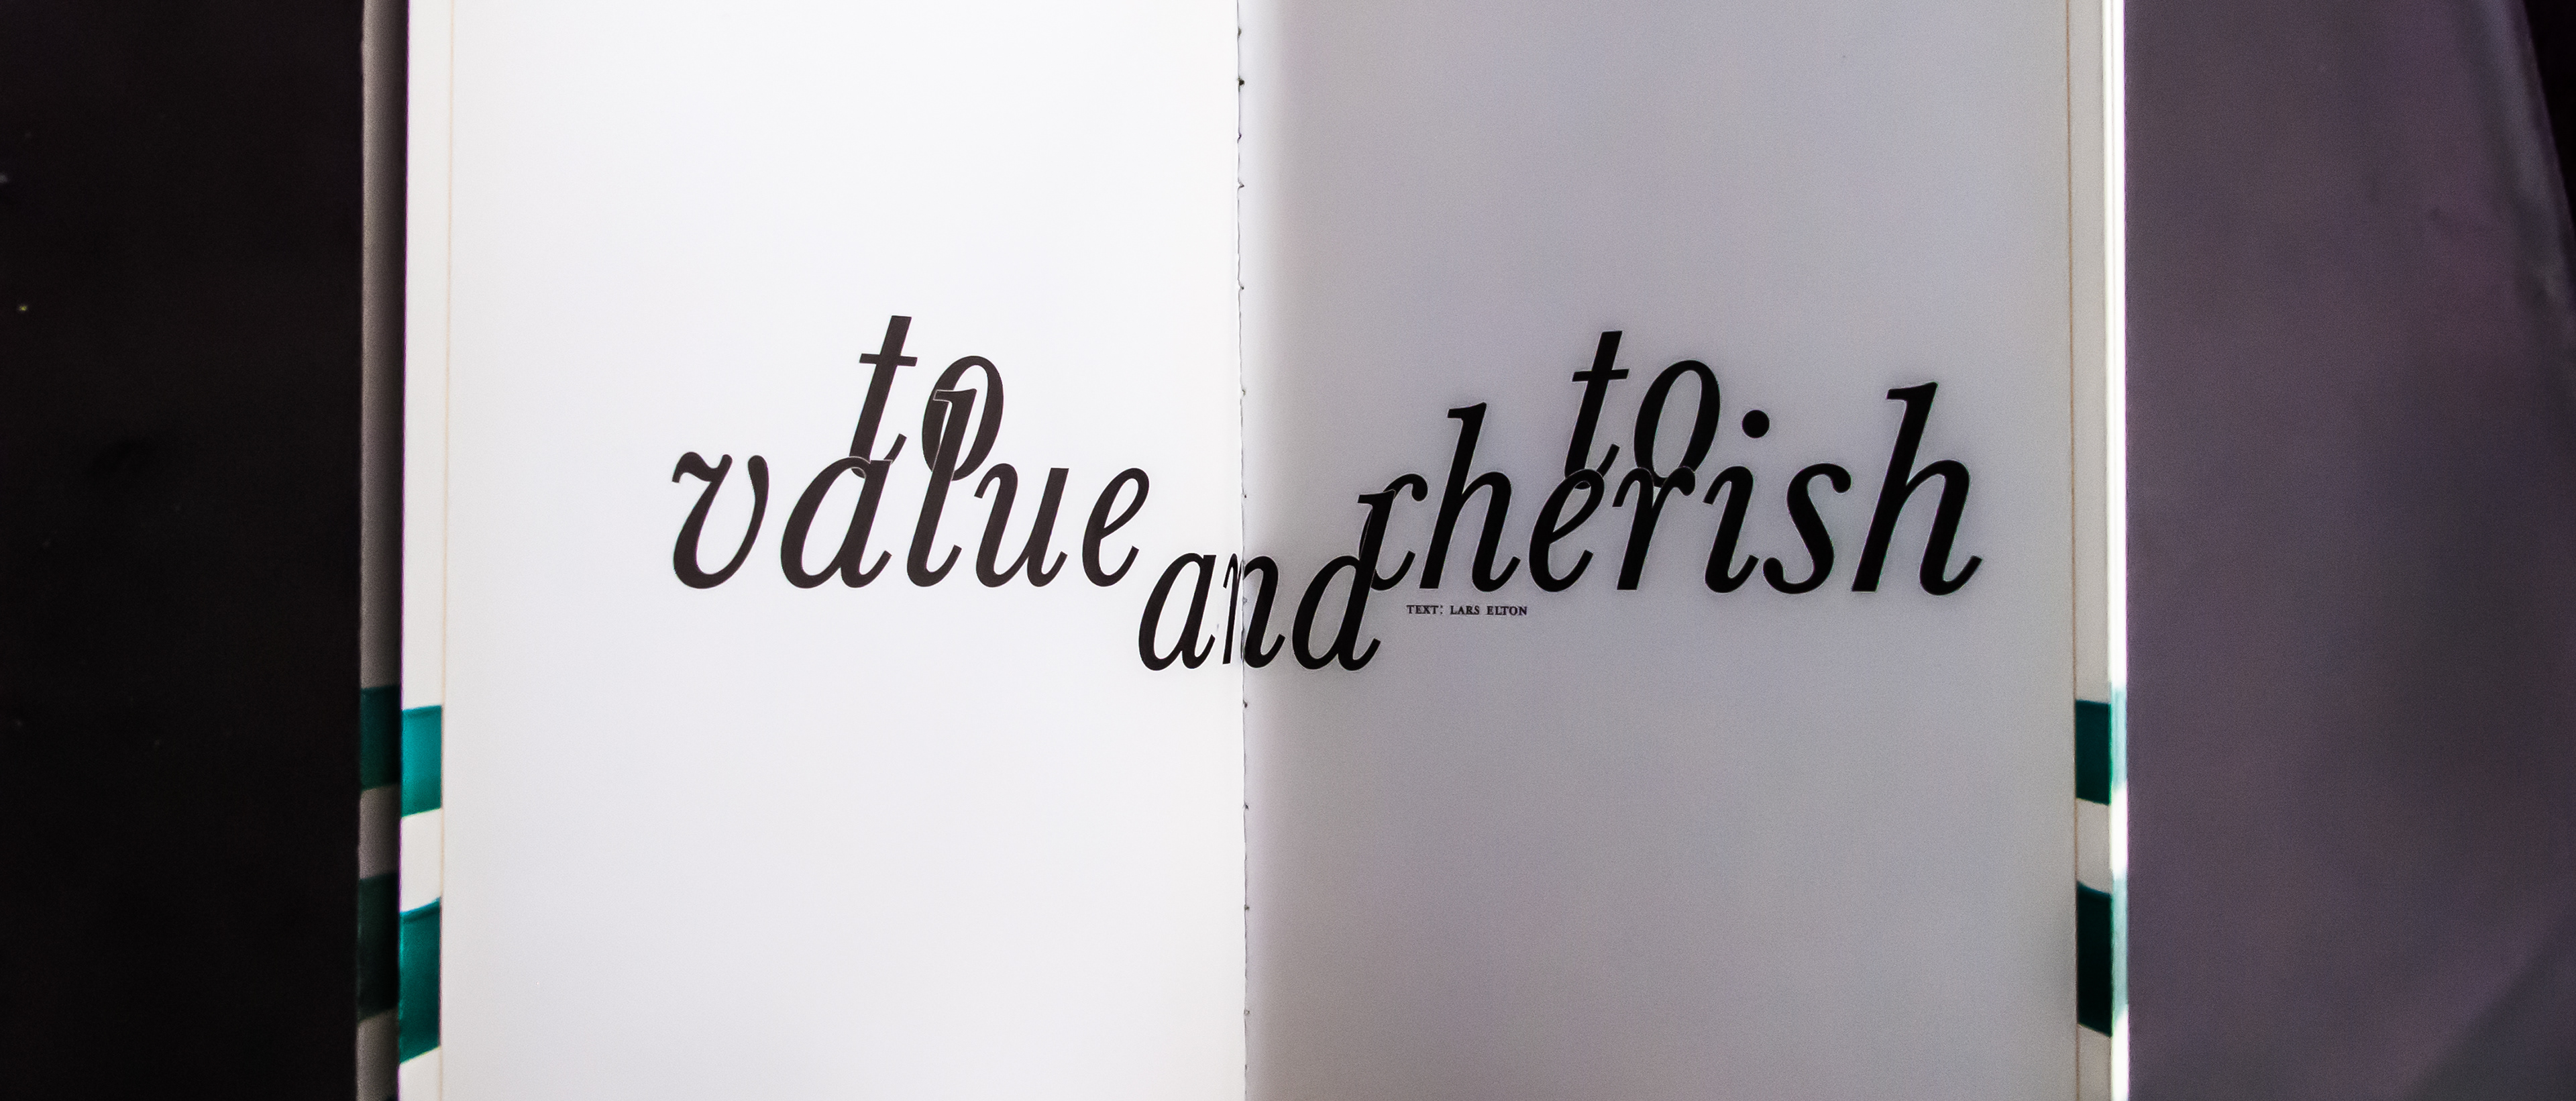 to
value
and
to
cherish
TEXT: LARS ELTON